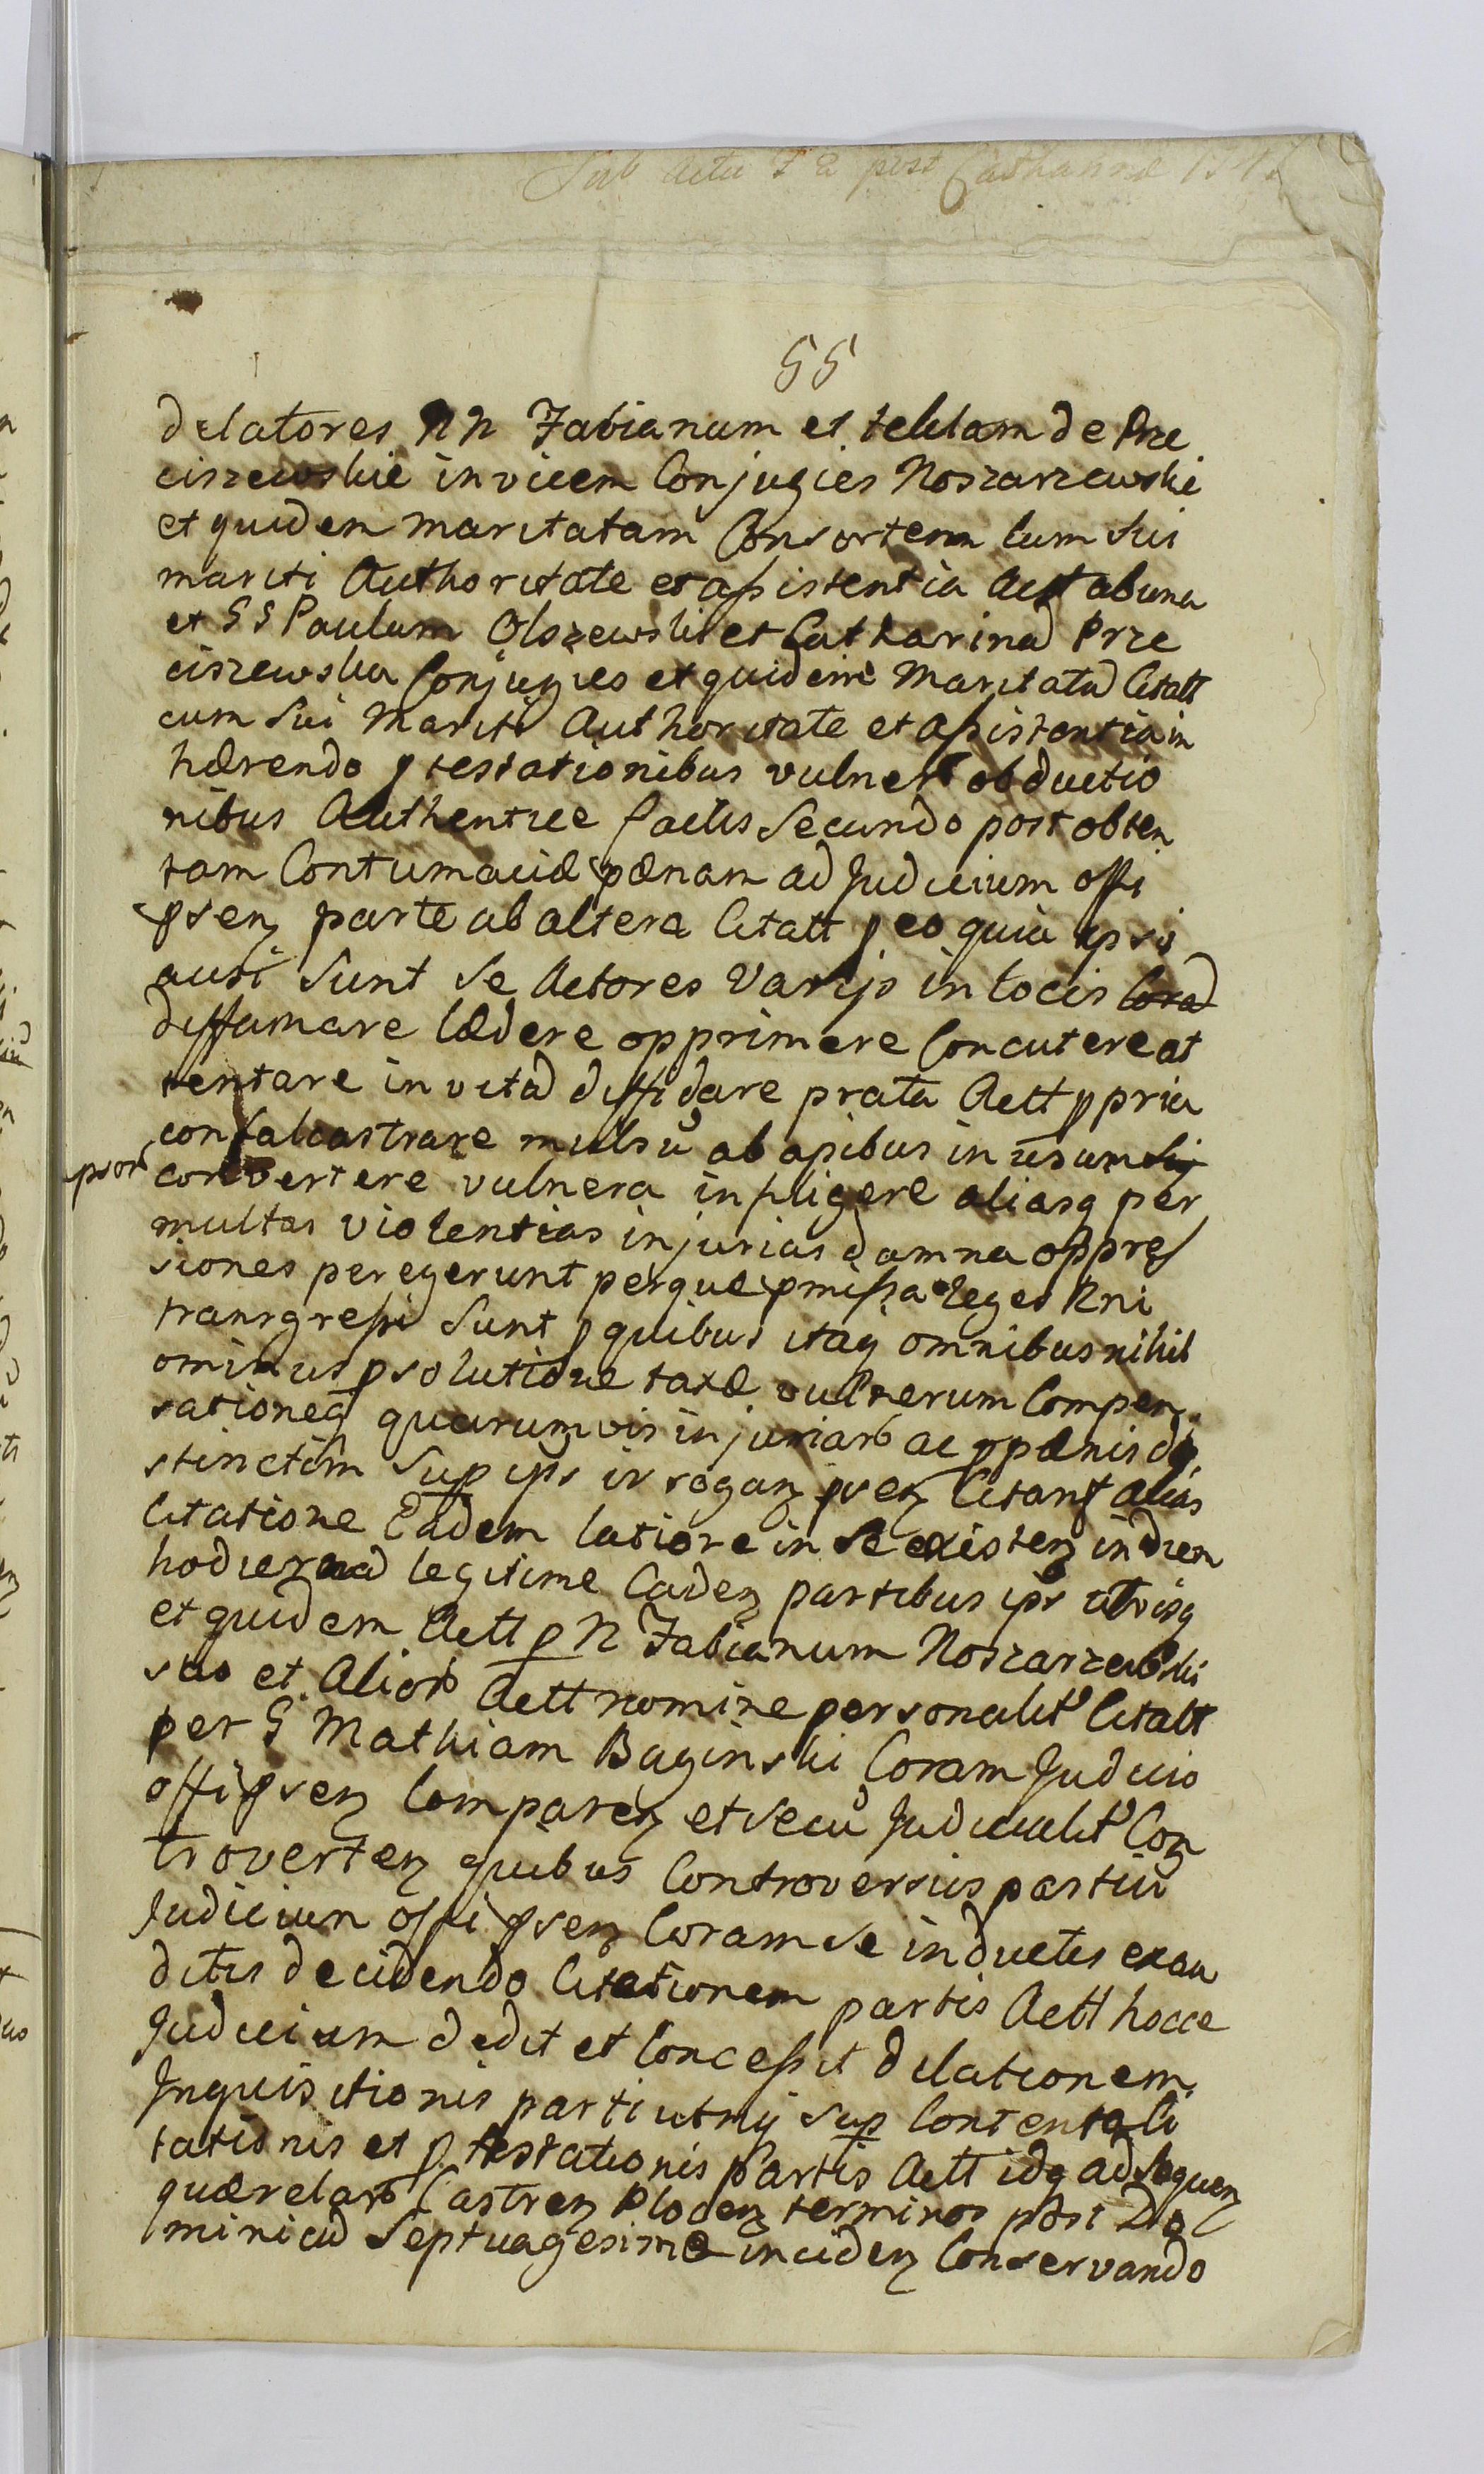 Sub Actu F 2 post Catharinæ 174
55
delatores NN Fabianum et teklam de Prze
ciszewskie invicem Conjugies Noszarzewskie
et quidem maritatam Consortem cum sui
mariti Authoritate et assistentia Act ab una
et GG Paulum Olszewski et Catharinā Prze
ciszewska Conjugies et quidem Maritatā Citatt
cum sui Mariti Authoritate et assistentia in
hærendo ptestationibus vulner obductio
nibus Authentice factis Secundo post obten
tam Contumaciæ pænam ad Judicium offi
psen parte ab altera Citatt p eo quia ipsi
ausi sunt se Actores Varijs in locis Corā
diffamare lædere opprimere Concutere at
tentare in vitā diffidare prata Actt ppria
confalcastrare mulsū ab apibus in usum suū
ipsor convertere vulnera infligere aliasq per
multas violentias injurias damna oppres
siones peregerunt per quæ pmissa leges Rni
transgressi sunt p quibus itaq omnibus nihil
ominus p solutione taxæ vulnerum Compen
sationeq quarumvis injuriarō ac p pænis di
stinctim sup ips irrogan psen Citant alias
Citatione Eadem latiore in se existen in diem
hodiernā legitime Caden partibus ips utrisq
et quidem Actt p N Fabianum Noszarzewski
suo et Aliorō Actt nomine personalit Citatt
per G Mathiam Baginski Coram Judicio
offi psen Comparen et secū Judicialit Con
troverten quibus Controversiis partiū
Judicium offi psen Coram se inductis exau
ditis decidendo Citationem partis Actt hocce
Judicium dedit et Concessit dilationem
Inquisitionis parti utriq sup Contenta Ci
tationis et ptestationis partis Actt idq ad sequen
quærelarō Castren Plocen terminos post Do
minicā Septuagesimæ inciden Conservando